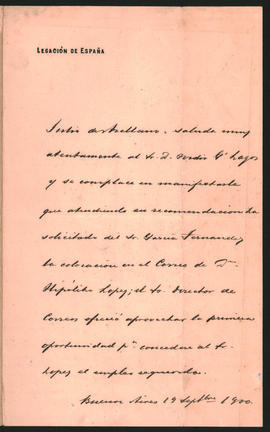 LEGACIÓN DE ESPAÑA
Julio de Arellano, saluda muy
atentamente al Sr. D. Pedro Gª Lagos
y se complace en manifestarle
que atendiendo su recomendación ha
solicitado del Sr. García Fernandez
la colocación en el Correo de Dn
Hipólito Lopez; el Sr. Director de
Correos ofreció aprovechar la primera
oportunidad pª conceder al Sr.
Lopez el empleo requerido.
Buenos Aires 19 Sepbre 1900.